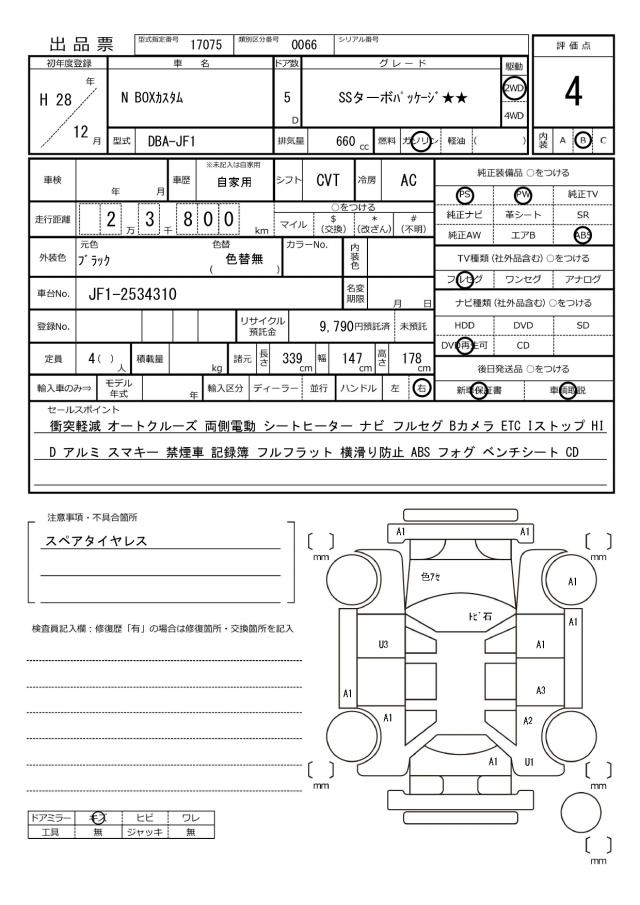 出品票 型式指定番号 17075 類別区分番号 0066 シリアル番号
評価点
初年度登録 車名 ドア数 グレード 駆動
H 28 年 N BOXカスタム 5 D SSターボパッケージ★★ 2WD 4
4WD
12 月 型式 DBA-JF1 排気量 660 cc 燃料 ガソリン 軽油 ( ) 内装 A B C
車検 年 月 車歴 ※未記入は自家用 自家用 シフト CVT 冷房 AC 純正装備品 ○をつける
PS PW 純正TV
走行距離 2 万 3 千 8 0 0 km ○をつける マイル $(交換) *(改ざん) #(不明) 純正ナビ 革シート SR
純正AW エアB ABS
外装色 元色 ブラック 色替 ( 色替無 ) カラーNo. 内装色 TV種類 (社外品含む) ○をつける
フルセグ ワンセグ アナログ
車台No. JF1-2534310 名変期限 月 日 ナビ種類 (社外品含む) ○をつける
登録No. リサイクル預託金 9,790円預託済 未預託 HDD DVD SD
DVD再生可 CD
定員 4( ) 人 積載量 kg 諸元 長さ 339 cm 幅 147 cm 高さ 178 cm 後日発送品 ○をつける
輸入車のみ⇒ モデル年式 年 輸入区分 ディーラー 並行 ハンドル 左 右 新車保証書 車輌取説
セールスポイント
衝突軽減 オートクルーズ 両側電動 シートヒーター ナビ フルセグ Bカメラ ETC Iストップ HI
D アルミ スマキー 禁煙車 記録簿 フルフラット 横滑り防止 ABS フォグ ベンチシート CD
注意事項・不具合箇所
スペアタイヤレス
検査員記入欄：修復歴「有」の場合は修復箇所・交換箇所を記入
A1 A1
mm mm
色アセ A1
トビ石 A1
U3 A1
A1 A3
A1 A2
A1 U1
mm mm
ドアミラー キズ ヒビ ワレ
工具 無 ジャッキ 無
mm